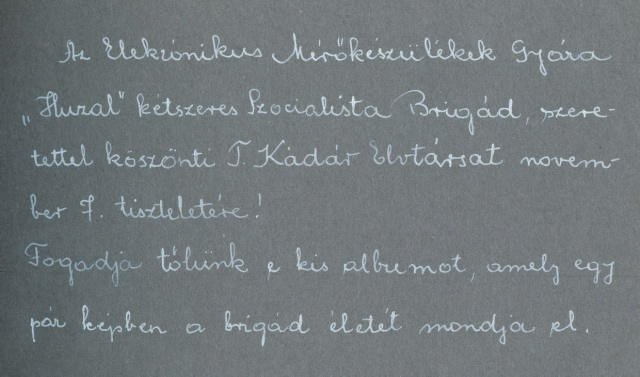 Az Elektrónikus Mérőkészülékek Gyára
„Hural" kétszeres Szocialista Brigád, szere-
tettel köszönti T. Kádár Elvtársat novem-
ber 7. tiszteletére!
Fogadja tőlünk e kis albumot, amely egy
pár képben a brigád életét mondja el.